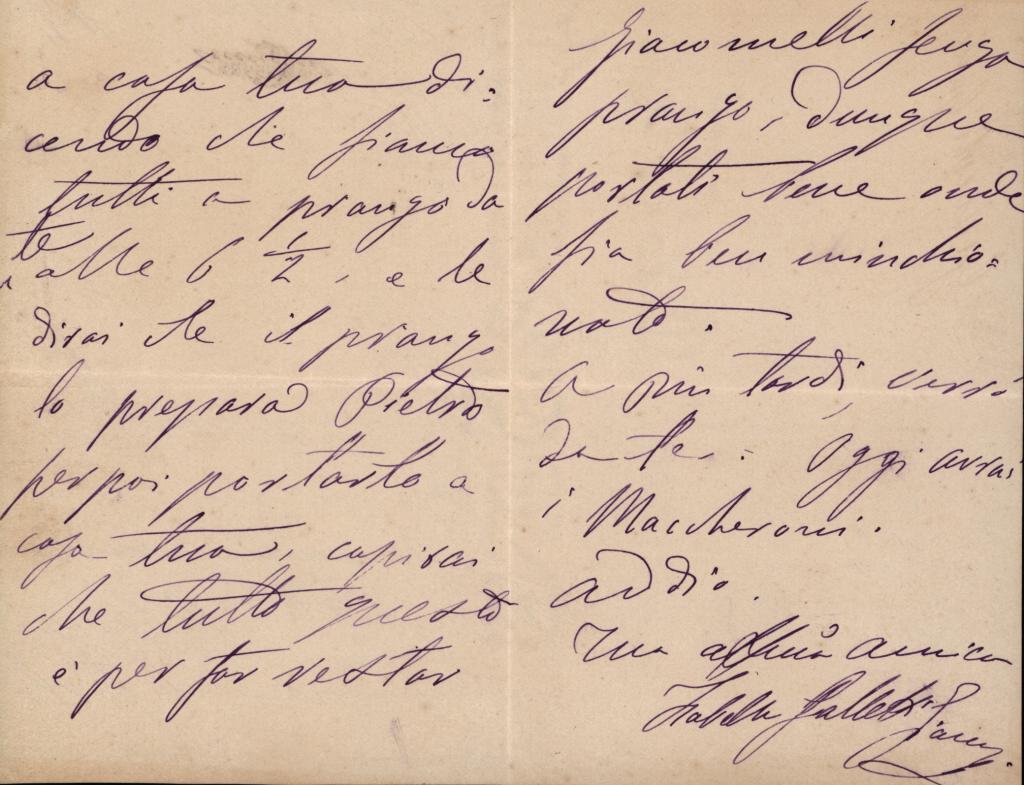 a casa tua di=
cendo che siamo
tutti a prango da
te
alle 6 1/2, e le
dirai che il prango
lo preparò Pietro
per poi portarlo a
casa tua, capirai
che tutto questo
è per far restar
Giacomelli senza
prango, dunque
portati bene onde
sia ben minchio=
nato.
A piu tardi, verrò
da te. Oggi avrai
i Maccheroni.
addio.
Tua affma amica
Isabella Galletti